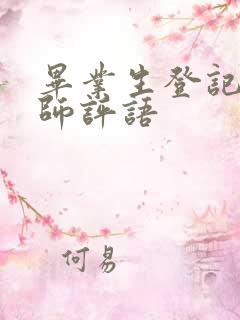 畢業生登記
師評語
何易